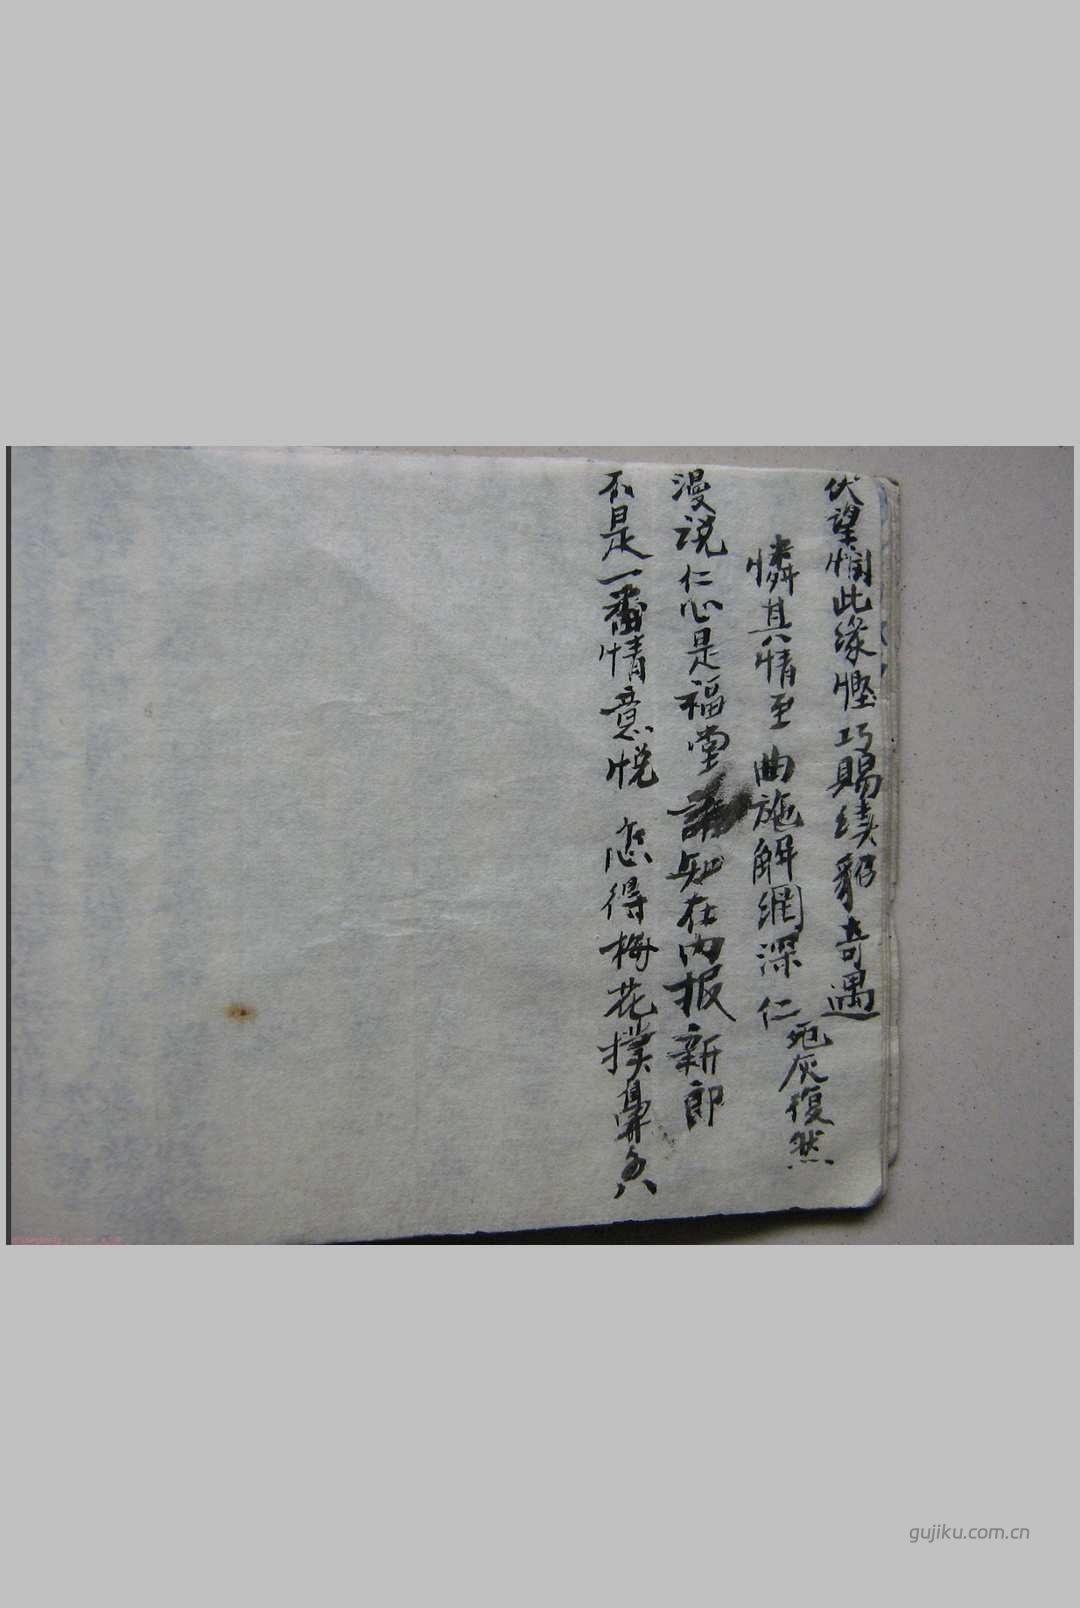 伏望悯此缘悭巧賜续貂奇遇
憐其情至曲施解網深仁死灰復然
漫说仁心是福堂誰知在内报新郎
不是一畨情意悦恋得梅花撲鼻香
gujiku.com.cn